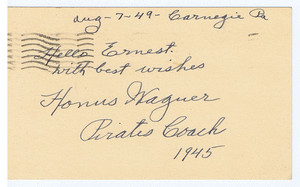 Aug-7-49-Carnegie Pa
Hello Ernest.
with best wishes
Honus Wagner
Pirates Coach
1945